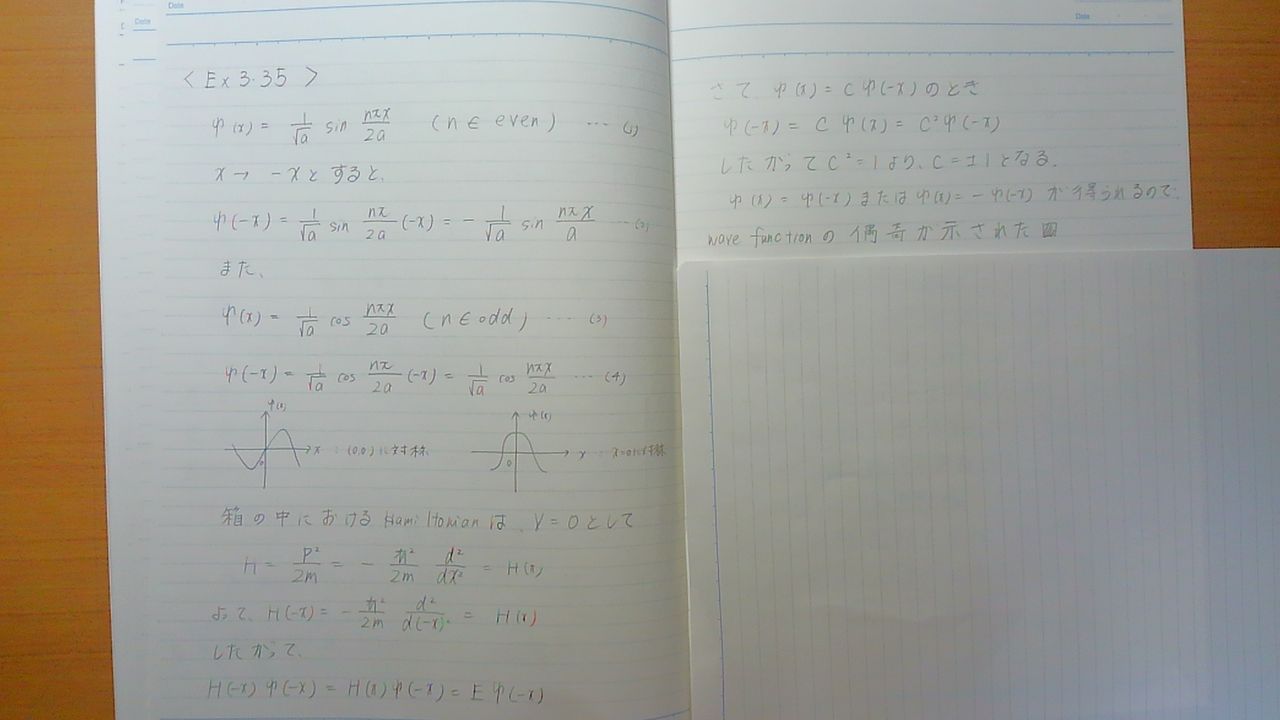 Date
Date
Date
〈Ex 3.35〉
ψ(x) = 1/√a sin nπx/2a (n ∈ even) … (1)
x → -x とすると、
ψ(-x) = 1/√a sin nπ/2a (-x) = - 1/√a sin nπx/a … (2)
また、
ψ(x) = 1/√a cos nπx/2a (n ∈ odd) … (3)
ψ(-x) = 1/√a cos nπ/2a (-x) = 1/√a cos nπx/2a … (4)
ψ(x)
x : (0,0)に対称
0
ψ(x)
x : x=0に対称
0
箱の中における Hamiltonian は、V = 0 として
H = P²/2m = - ħ²/2m d²/dx² = H(x)
よって、H(-x) = - ħ²/2m d²/d(-x)² = H(x)
したがって、
H(-x) ψ(-x) = H(x) ψ(-x) = E ψ(-x)
さて ψ(x) = C ψ(-x) のとき
ψ(-x) = C ψ(x) = C² ψ(-x)
したがって C² = 1 より、C = ±1 となる.
ψ(x) = ψ(-x) または ψ(x) = - ψ(-x) が得られるので、
wave function の 偶奇が示された